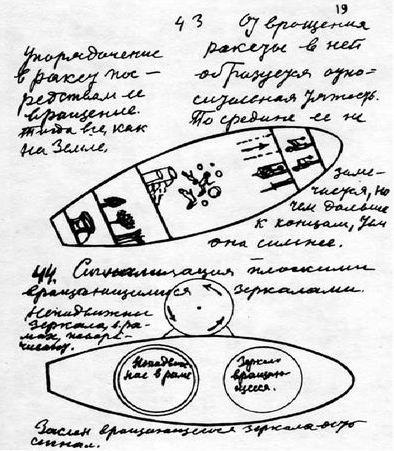 19
43 От вращения
ракеты в ней
образуется
тяжесть.
То средине ее не
заме-
чается, но
чем дальше
к концам, тем
она сильнее.
Упорядочение
в ракет пос-
редствам ее
вращение.
Тогда все, как
на Земле.
44. Сигнализация плоскими
вращающимися зеркалами.
Неподвижны
зеркала, в ра-
мах
Неподвиж
в раме
Зеркало
вращаю-
щееся.
Заслон вращающегося зеркала
сигнал.